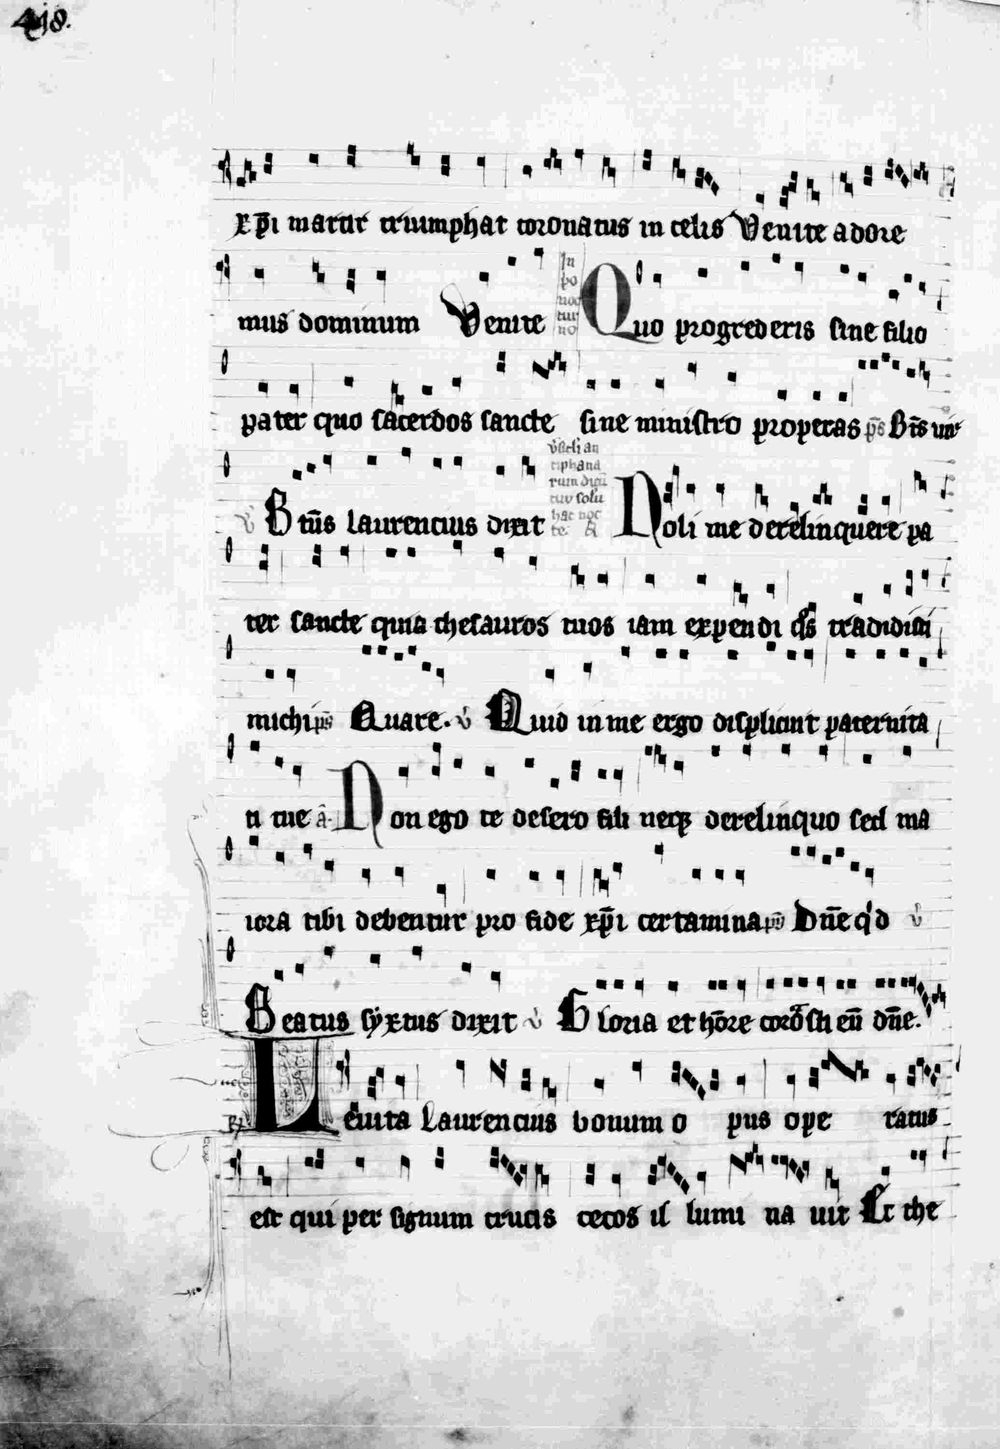 418.
xp̄i martir triumphat coronatus in celis Venite adore
mus dominum Venite
In po noc tur no
Quo progrederis sine filio
pater quo sacerdos sancte sine ministro properas ps̄ Bt̄s uir
v̄ Btūs laurencius dixit
tiphana rum dicū tur solu hac noc te. A
Noli me derelinquere pa
ter sancte quia thesauros tuos iam expendi qͦs tradidisti
michi ps̄ Quare. v̄ Quid in me ergo displicuit paternita
ti tue a̅ Non ego te desero fili neqꝫ derelinquo sed ma
iora tibi debentur pro fide xp̄i certamina ps̄ Dn̄e qͥd v̄
Beatus syxtus dixit v̄ Gloria et hōre corōsti eū dn̄e.
R̶ Leuita Laurencius bonum o pus ope ratus
est qui per signum crucis cecos il lumi na uit Et the